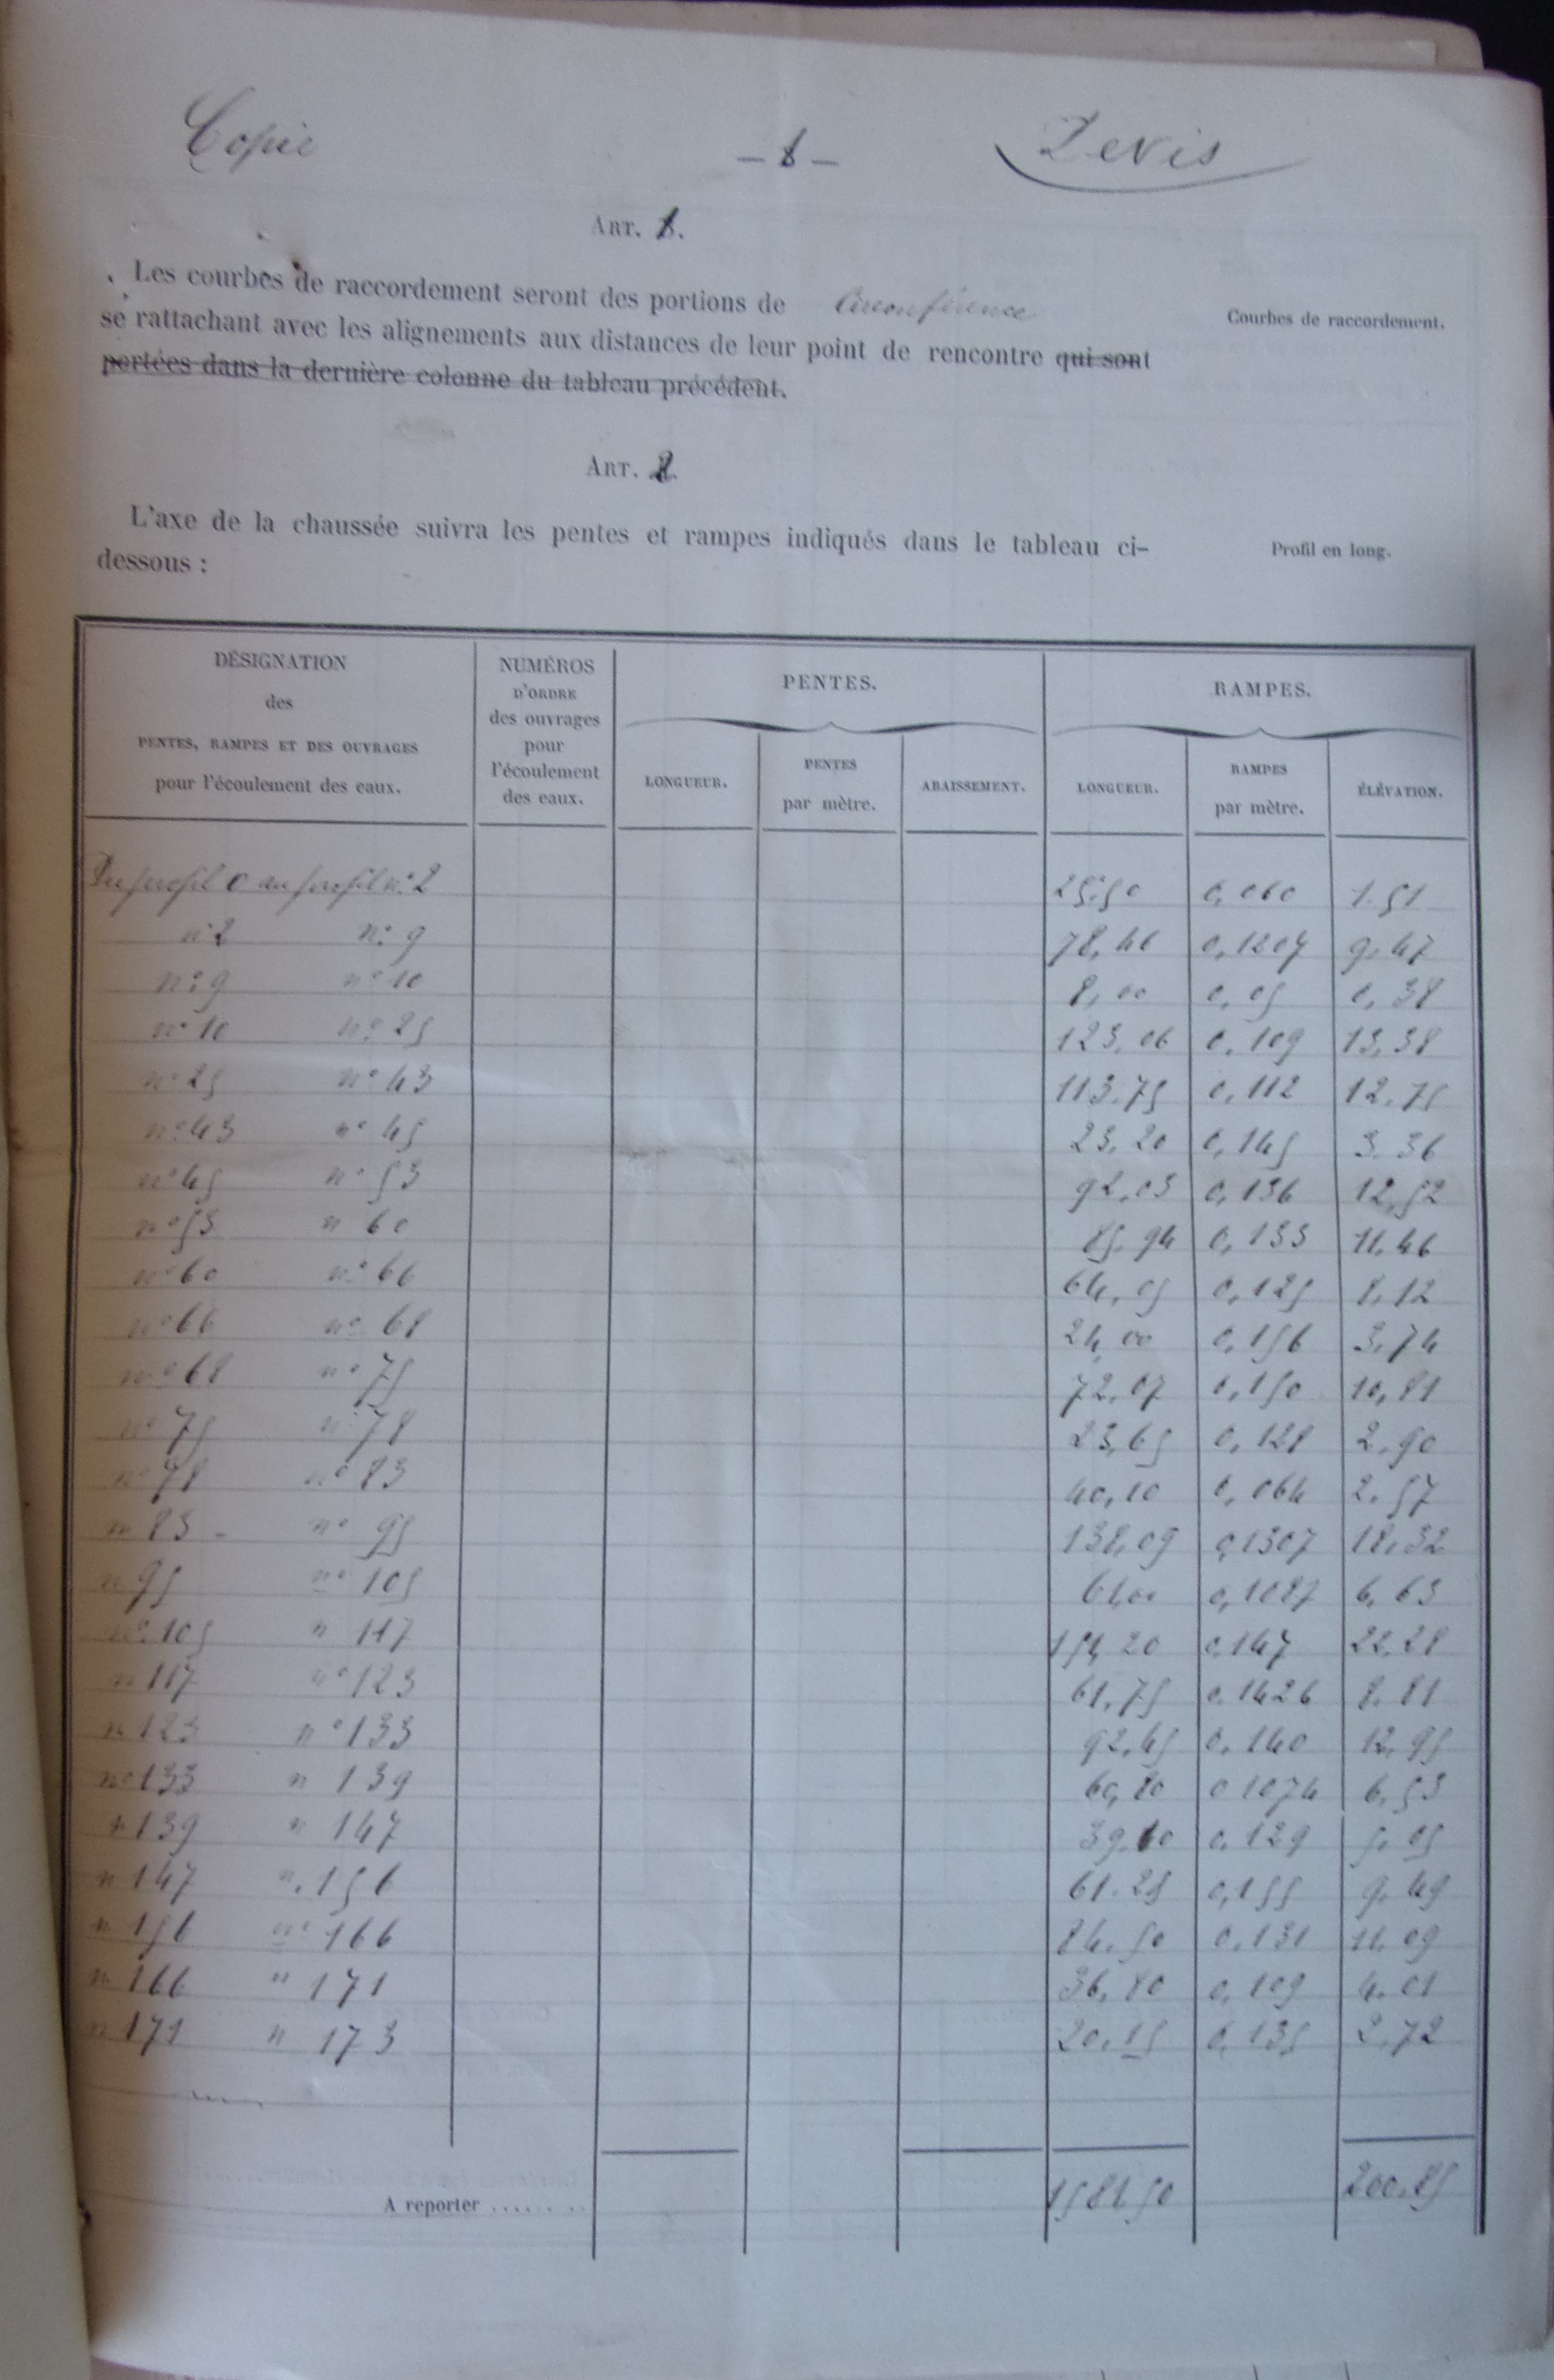 Copie — 1 — Devis
Art. 1.
Les courbes de raccordement seront des portions de Circonférence
se rattachant avec les alignements aux distances de leur point de rencontre qui sont
portées dans la dernière colonne du tableau précédent.
Courbes de raccordement.
Art. 2
L'axe de la chaussée suivra les pentes et rampes indiqués dans le tableau ci-
dessous :
Profil en long.
DÉSIGNATION
des
PENTES, RAMPES ET DES OUVRAGES
pour l'écoulement des eaux.
NUMÉROS
D'ORDRE
des ouvrages
pour
l'écoulement
des eaux.
PENTES.
LONGUEUR.
PENTES
par mètre.
ABAISSEMENT.
RAMPES.
LONGUEUR.
RAMPES
par mètre.
ÉLÉVATION.
Du profil 0 au profil n° 2 25,50 0,060 1.51
n° 2 n° 9 78,46 0,1207 9,47
n° 9 n° 10 8,00 0,05 0,38
n° 10 n° 25 123,06 0,109 13,38
n° 25 n° 43 113,75 0,112 12,75
n° 43 n° 45 23,20 0,145 3.36
n° 45 n° 53 92,03 0,136 12,52
n° 53 n 60 85,94 0,133 11,46
n° 60 n° 66 64,05 0,125 8,12
n° 66 n° 68 24,00 0,156 3,74
n° 68 n° 75 72,07 0,150 10,81
n° 75 n° 78 23,65 0,128 2,90
n° 78 n° 83 40,10 0,064 2,57
n 83 - n° 95 138,09 0,1307 18,32
n 95 n° 105 61,00 0,1087 6,63
n° 105 n 117 151,20 0,147 22,28
n 117 n° 123 61,75 0,1426 8,81
n 123 n° 133 92,45 0,140 12,95
n° 133 n 139 60,80 0 1074 6,53
n 139 n 147 39,10 0,129 5,05
n 147 n. 156 61.25 0,155 9,49
n 156 n° 166 84,50 0,131 11,09
n 166 n 171 36,80 0,109 4,01
n 171 n 173 20,15 0,135 2,72
A reporter ....... 1581 50 200,85